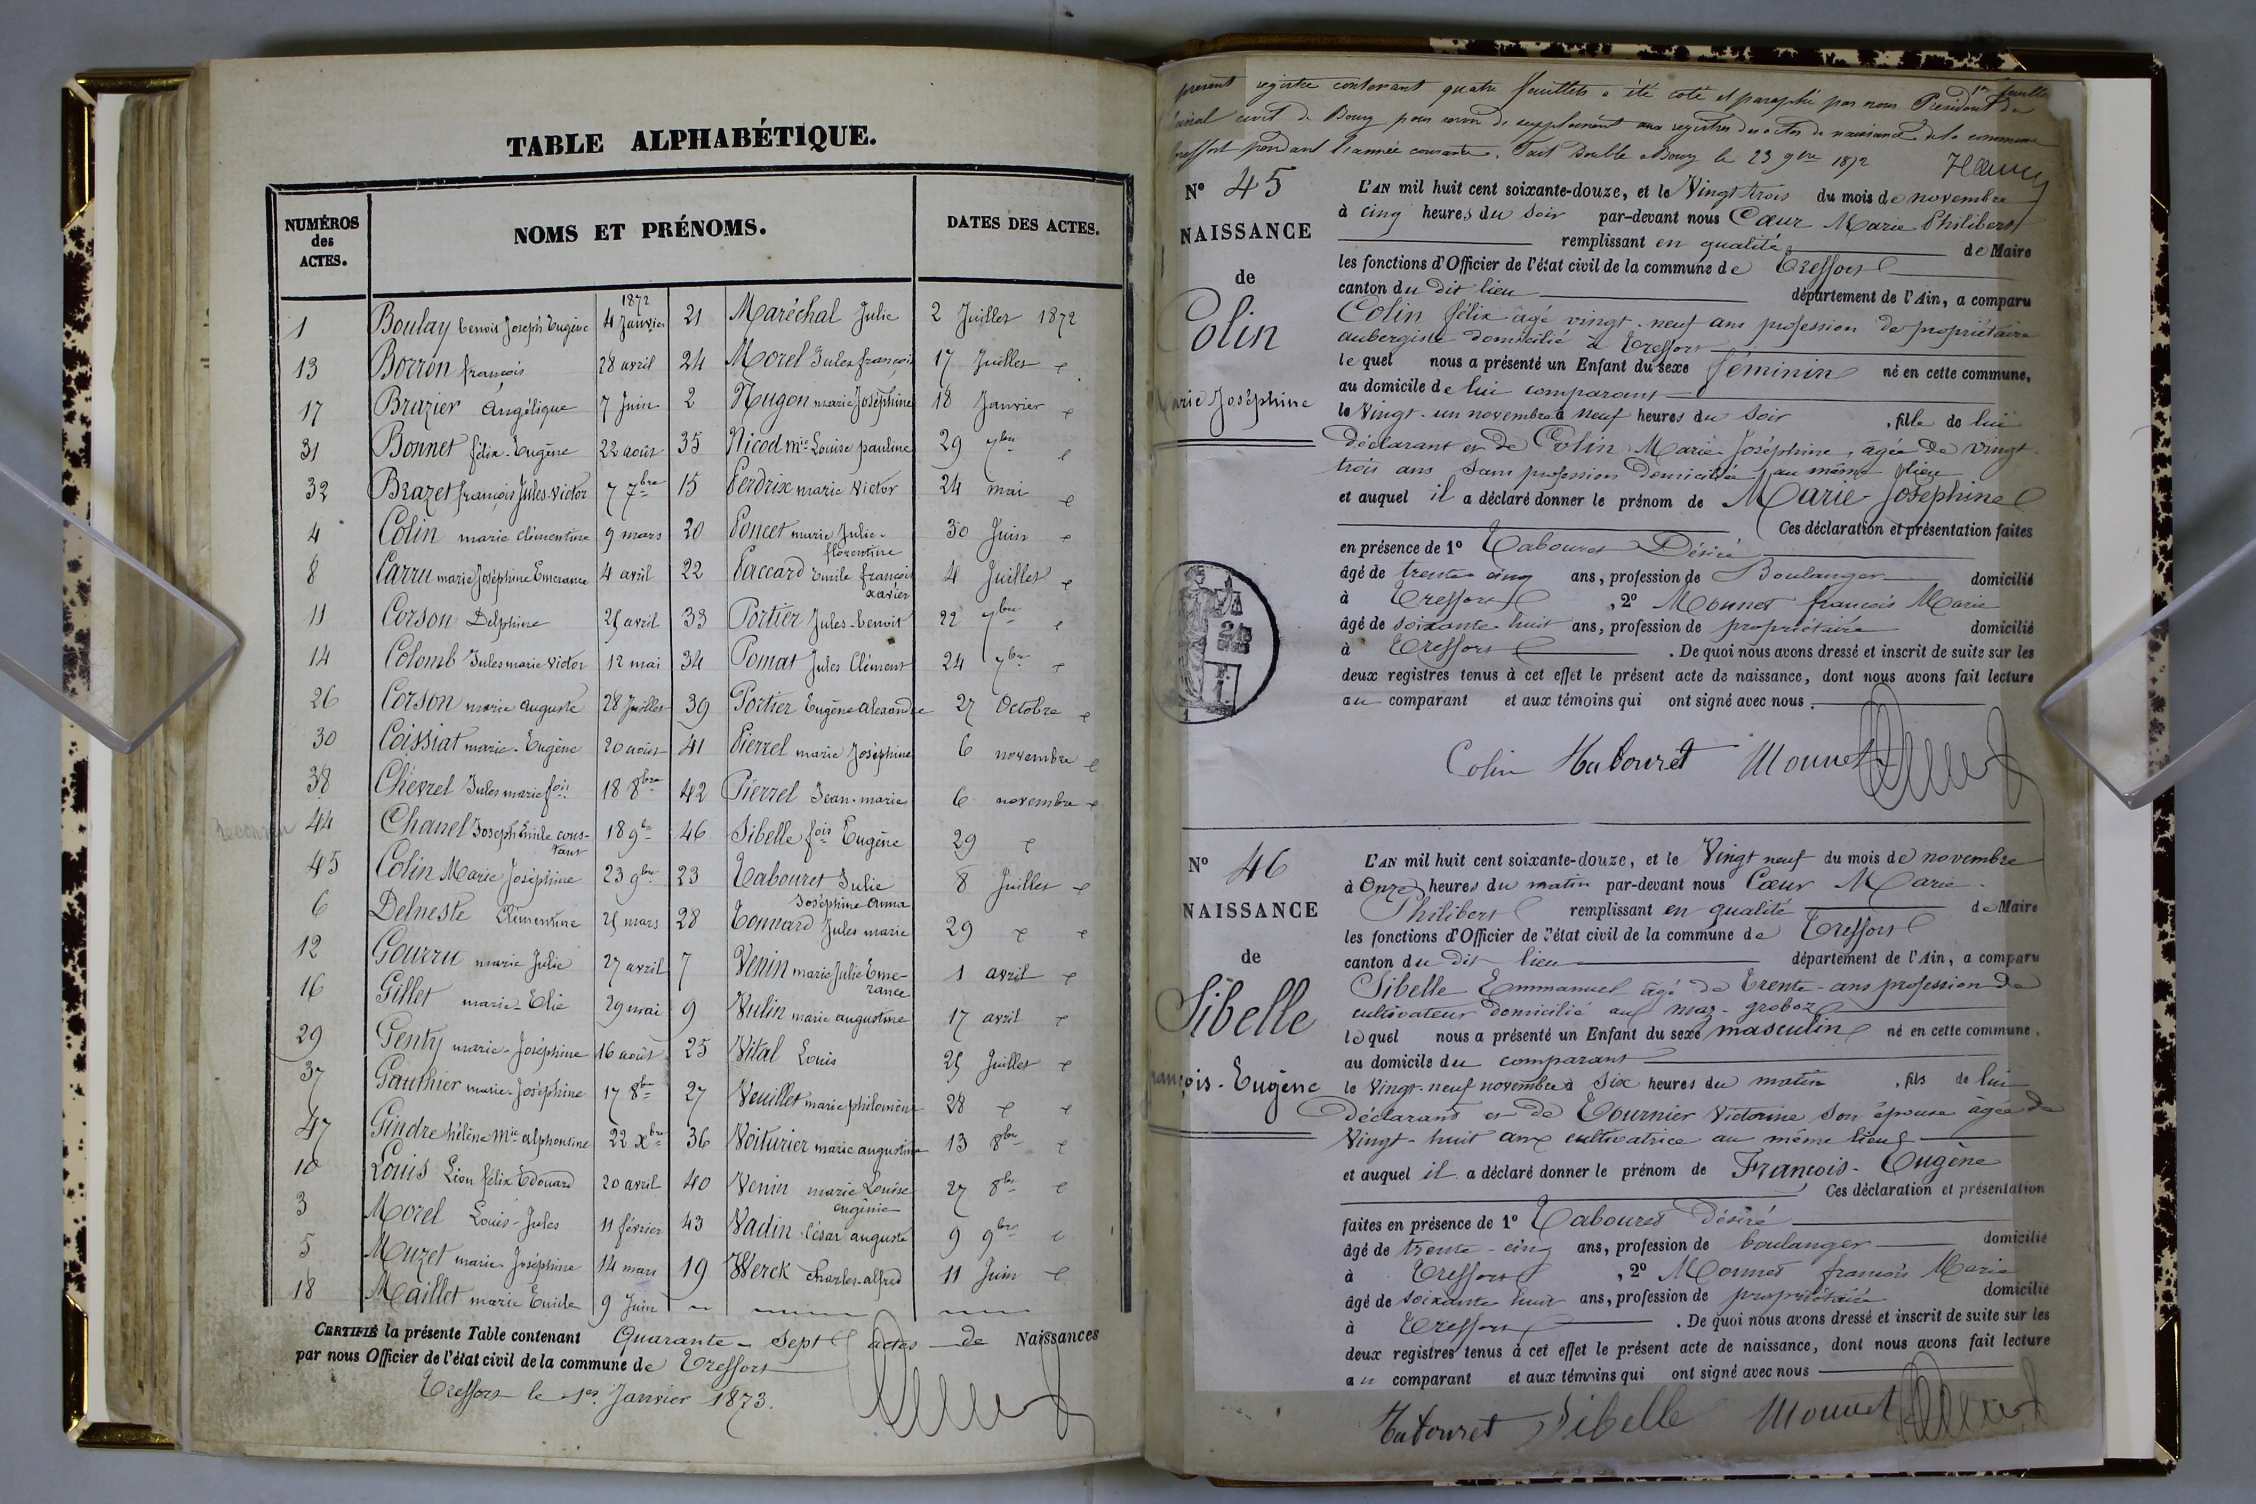 TABLE ALPHABÉTIQUE.
NUMÉROS des ACTES.
NOMS ET PRÉNOMS.
DATES DES ACTES.
1 Boulay benoit Joseph Eugène 1872 4 Janvier 21 Maréchal Julie 2 Juillet 1872
13 Borron françois 28 avril 24 Morel Jules françois 17 Juillet
17 Brazier Angélique 7 Juin 2 Nugon marie Joséphine 18 Janvier
31 Bonnet félix-Eugène 22 août 35 Nicod mie Louise pauline 29 7bre
32 Brazet françois Jules-victor 7 7bre 15 Perdrix marie Victor 24 mai
4 Colin marie clémentine 9 mars 20 Poncet marie Julie-florentine 30 Juin
8 Carru marie Joséphine Emerance 4 avril 22 Paccard Emile françois xavier 4 Juillet
11 Corson Delphine 25 avril 33 Portier Jules-benoit 22 7bre
14 Colomb Jules marie victor 12 mai 34 Pomat Jules Clément 24 7bre
26 Corson marie auguste 28 Juillet 39 Portier Eugène alexandre 27 Octobre
30 Coissiat marie-Eugène 20 août 41 Pierrel marie Joséphine 6 novembre
38 Chevrel Jules marie fois 18 8bre 42 Pierrel Jean-marie 6 novembre
44 Chanel Joseph Emile cons-tant 18 9bre 46 Sibelle fois Eugène 29
45 Colin Marie Joséphine 23 9bre 23 Tabouret Julie Joséphine anna 8 Juillet
6 Delneste Clémentine 25 mars 28 Tonnard Jules marie 29
12 Gourru marie Julie 27 avril 7 Venin marie Julie Eme-rance 1 avril
16 Gillet marie-Elie 29 mai 9 Vulin marie augustine 17 avril
29 Genty marie-Joséphine 16 août 25 Vital Louis 25 Juillet
37 Gauthier marie-Joséphine 17 8bre 27 Veuillet marie philomène 28
47 Gindre hélène mie alphontine 22 xbre 36 Voiturier marie augustine 13 8bre
10 Louis Léon félix Edouard 20 avril 40 Venin marie Louise eugénie 27 8bre
3 Morel Louis-Jules 11 février 43 Vadin césar auguste 9 9bre
5 Muzet marie Joséphine 14 mars 19 Werck charles-alfred 11 Juin
18 Maillet marie Emile 9 Juin
CERTIFIÉ la présente Table contenant Quarante-Sept actes de Naissances
par nous Officier de l'état civil de la commune de Treffort
Treffort le 1er Janvier 1873.
1er feuillet
présent registre contenant quatre feuillets a été coté et paraphé par nous Président du
civil de Bourg pour servir de supplément aux registres des actes de naissance de la commune
Treffort pendant l'année courante. Fait double à Bourg le 23 9bre 1872
N° 45
NAISSANCE
de
Colin
Marie Joséphine
L'AN mil huit cent soixante-douze, et le Vingt trois du mois de novembre
à cinq heures du soir par-devant nous Cœur Marie Philibert
remplissant en qualité de Maire
les fonctions d'Officier de l'état civil de la commune de Treffort
canton du dit lieu département de l'Ain, a comparu
Colin félix âgé vingt-neuf ans profession de propriétaire
aubergiste domicilié à Treffort
le quel nous a présenté un Enfant du sexe féminin né en cette commune,
au domicile de lui comparant
le Vingt-un novembre à Neuf heures du Soir , fille de lui
déclarant et de Colin Marie-Joséphine, âgée de vingt
trois ans sans profession domiciliée au même lieu
et auquel il a déclaré donner le prénom de Marie Joséphine
Ces déclaration et présentation faites
en présence de 1° Tabouret Désiré
âgé de trente cinq ans, profession de Boulanger domicilié
à Treffort , 2° Monnet françois Marie
âgé de soixante huit ans, profession de propriétaire domicilié
à Treffort . De quoi nous avons dressé et inscrit de suite sur les
deux registres tenus à cet effet le présent acte de naissance, dont nous avons fait lecture
au comparant et aux témoins qui ont signé avec nous.
Colin Tabouret Monnet
N° 46
NAISSANCE
de
Sibelle
françois-Eugène
L'AN mil huit cent soixante-douze, et le Vingt neuf du mois de novembre
à Onze heures du matin par-devant nous Cœur Marie
Philibert remplissant en qualité de Maire
les fonctions d'Officier de l'état civil de la commune de Treffort
canton du dit lieu département de l'Ain, a comparu
Sibelle Emmanuel âgé de trente-ans profession de
cultivateur domicilié au maz-groboz
le quel nous a présenté un Enfant du sexe masculin né en cette commune,
au domicile du comparant
le Vingt-neuf novembre à Six heures du matin , fils de lui
déclarant et de Tournier Victorine son épouse âgée de
Vingt-huit ans cultivatrice au même lieu
et auquel il a déclaré donner le prénom de François-Eugène
Ces déclaration et présentation
faites en présence de 1° Tabouret Désiré
âgé de trente-cinq ans, profession de boulanger domicilié
à Treffort , 2° Monnet françois Marie
âgé de soixante huit ans, profession de propriétaire domicilié
à Treffort . De quoi nous avons dressé et inscrit de suite sur les
deux registres tenus à cet effet le présent acte de naissance, dont nous avons fait lecture
au comparant et aux témoins qui ont signé avec nous
Tabouret Sibelle Monnet